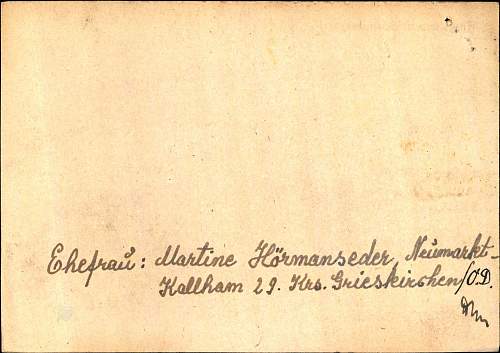 Ehefrau: Martine Hörmanseder, Neumarkt-
Kallham 29. Krs. Grieskirchen/O.D.